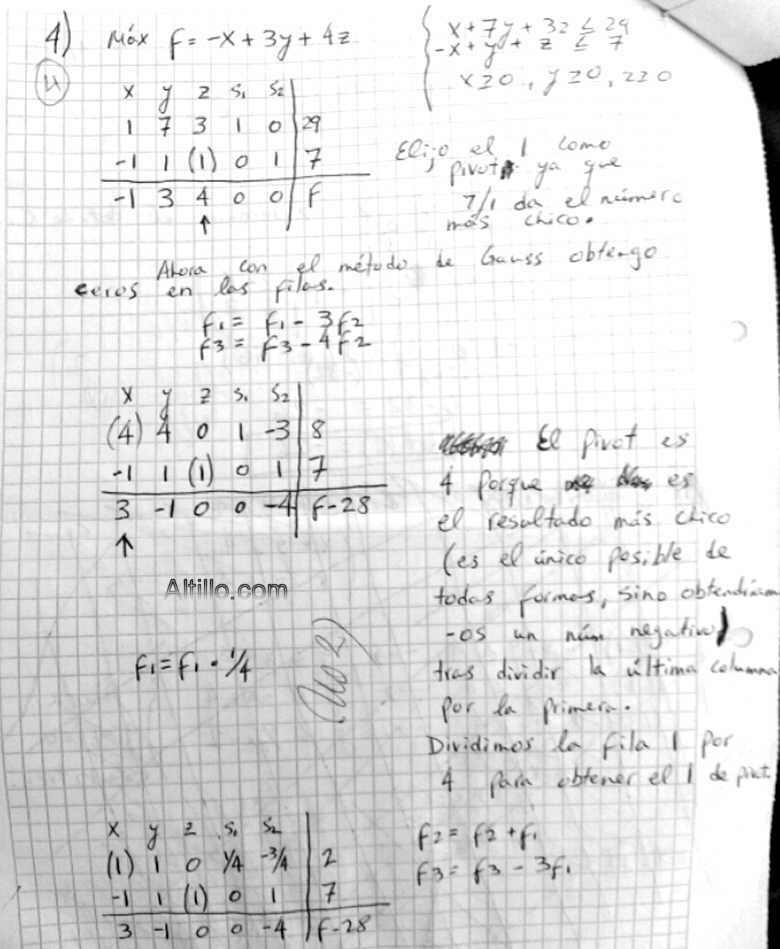 4) Máx F = -x + 3y + 4z
x + 7y + 3z ≤ 29
-x + y + z ≤ 7
x ≥ 0, y ≥ 0, z ≥ 0
4
x y z s₁ s₂
1 7 3 1 0 | 29
-1 1 (1) 0 1 | 7
-1 3 4 0 0 | F
↑
Elijo el 1 como
pivot ya que
7/1 da el número
más chico.
Ahora con el método de Gauss obtengo
ceros en las filas.
F₁ = F₁ - 3F₂
F3 = F3 - 4F2
x y z s₁ s₂
(4) 4 0 1 -3 | 8
-1 1 (1) 0 1 | 7
3 -1 0 0 -4 | F-28
↑
El pivot es
4 porque es
el resultado más chico
(es el único posible de
todas formas, sino obtendriam
-os un núm negativo)
tras dividir la última columna
por la primera.
Dividimos la fila 1 por
4 para obtener el 1 de pivot.
Altillo.com
F₁ = F₁ · 1/4
(No 2)
x y z s₁ s₂
(1) 1 0 1/4 -3/4 | 2
-1 1 (1) 0 1 | 7
3 -1 0 0 -4 | F-28
F2 = F2 + F₁
F3 = F3 - 3F₁